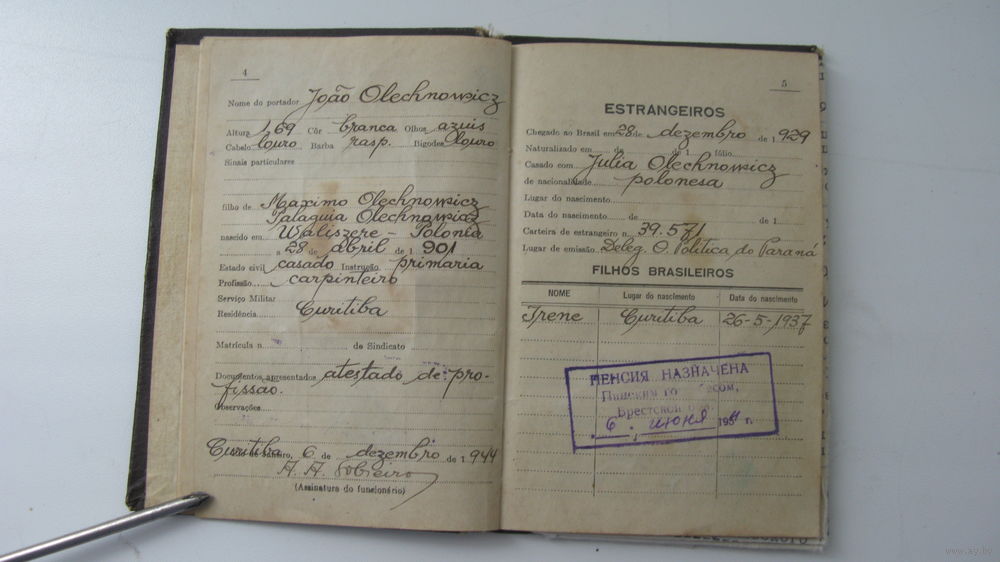 4
Nome do portador João Olechnowicz
Altura 1,69 Côr branca Olhos azuis
Cabelo louro Barba rasp. Bigodes louro
Sinais particulares
filho de Maximo Olechnowicz
Palaguia Olechnowicz
nascido em Waliszere - Polonia
a 28 de abril de 1.901
Estado civil casado Instrução primaria
Profissão carpinteiro
Serviço Militar
Residência Curitiba
Matrícula n. do Sindicato
Documentos apresentados atestado de pro-
fissão.
Observações
Curitiba de Janeiro, 6 de dezembro de 1.944
(Assinatura do funcionário)
5
ESTRANGEIROS
Chegado ao Brasil em 28 de dezembro de 1.929
Naturalizado em de de 1 fólio
Casado com Julia Olechnowicz
de nacionalidade polonesa
Lugar do nascimento
Data do nascimento de de 1.
Carteira de estrangeiro n. 39.571
Lugar de emissão Deleg. O. Politica do Paraná
FILHOS BRASILEIROS
NOME Lugar do nascimento Data do nascimento
Irene Curitiba 26-5-1937
ПЕНСИЯ НАЗНАЧЕНА
Пинским
Брестской
6. июня 195 г.
www.ay.by